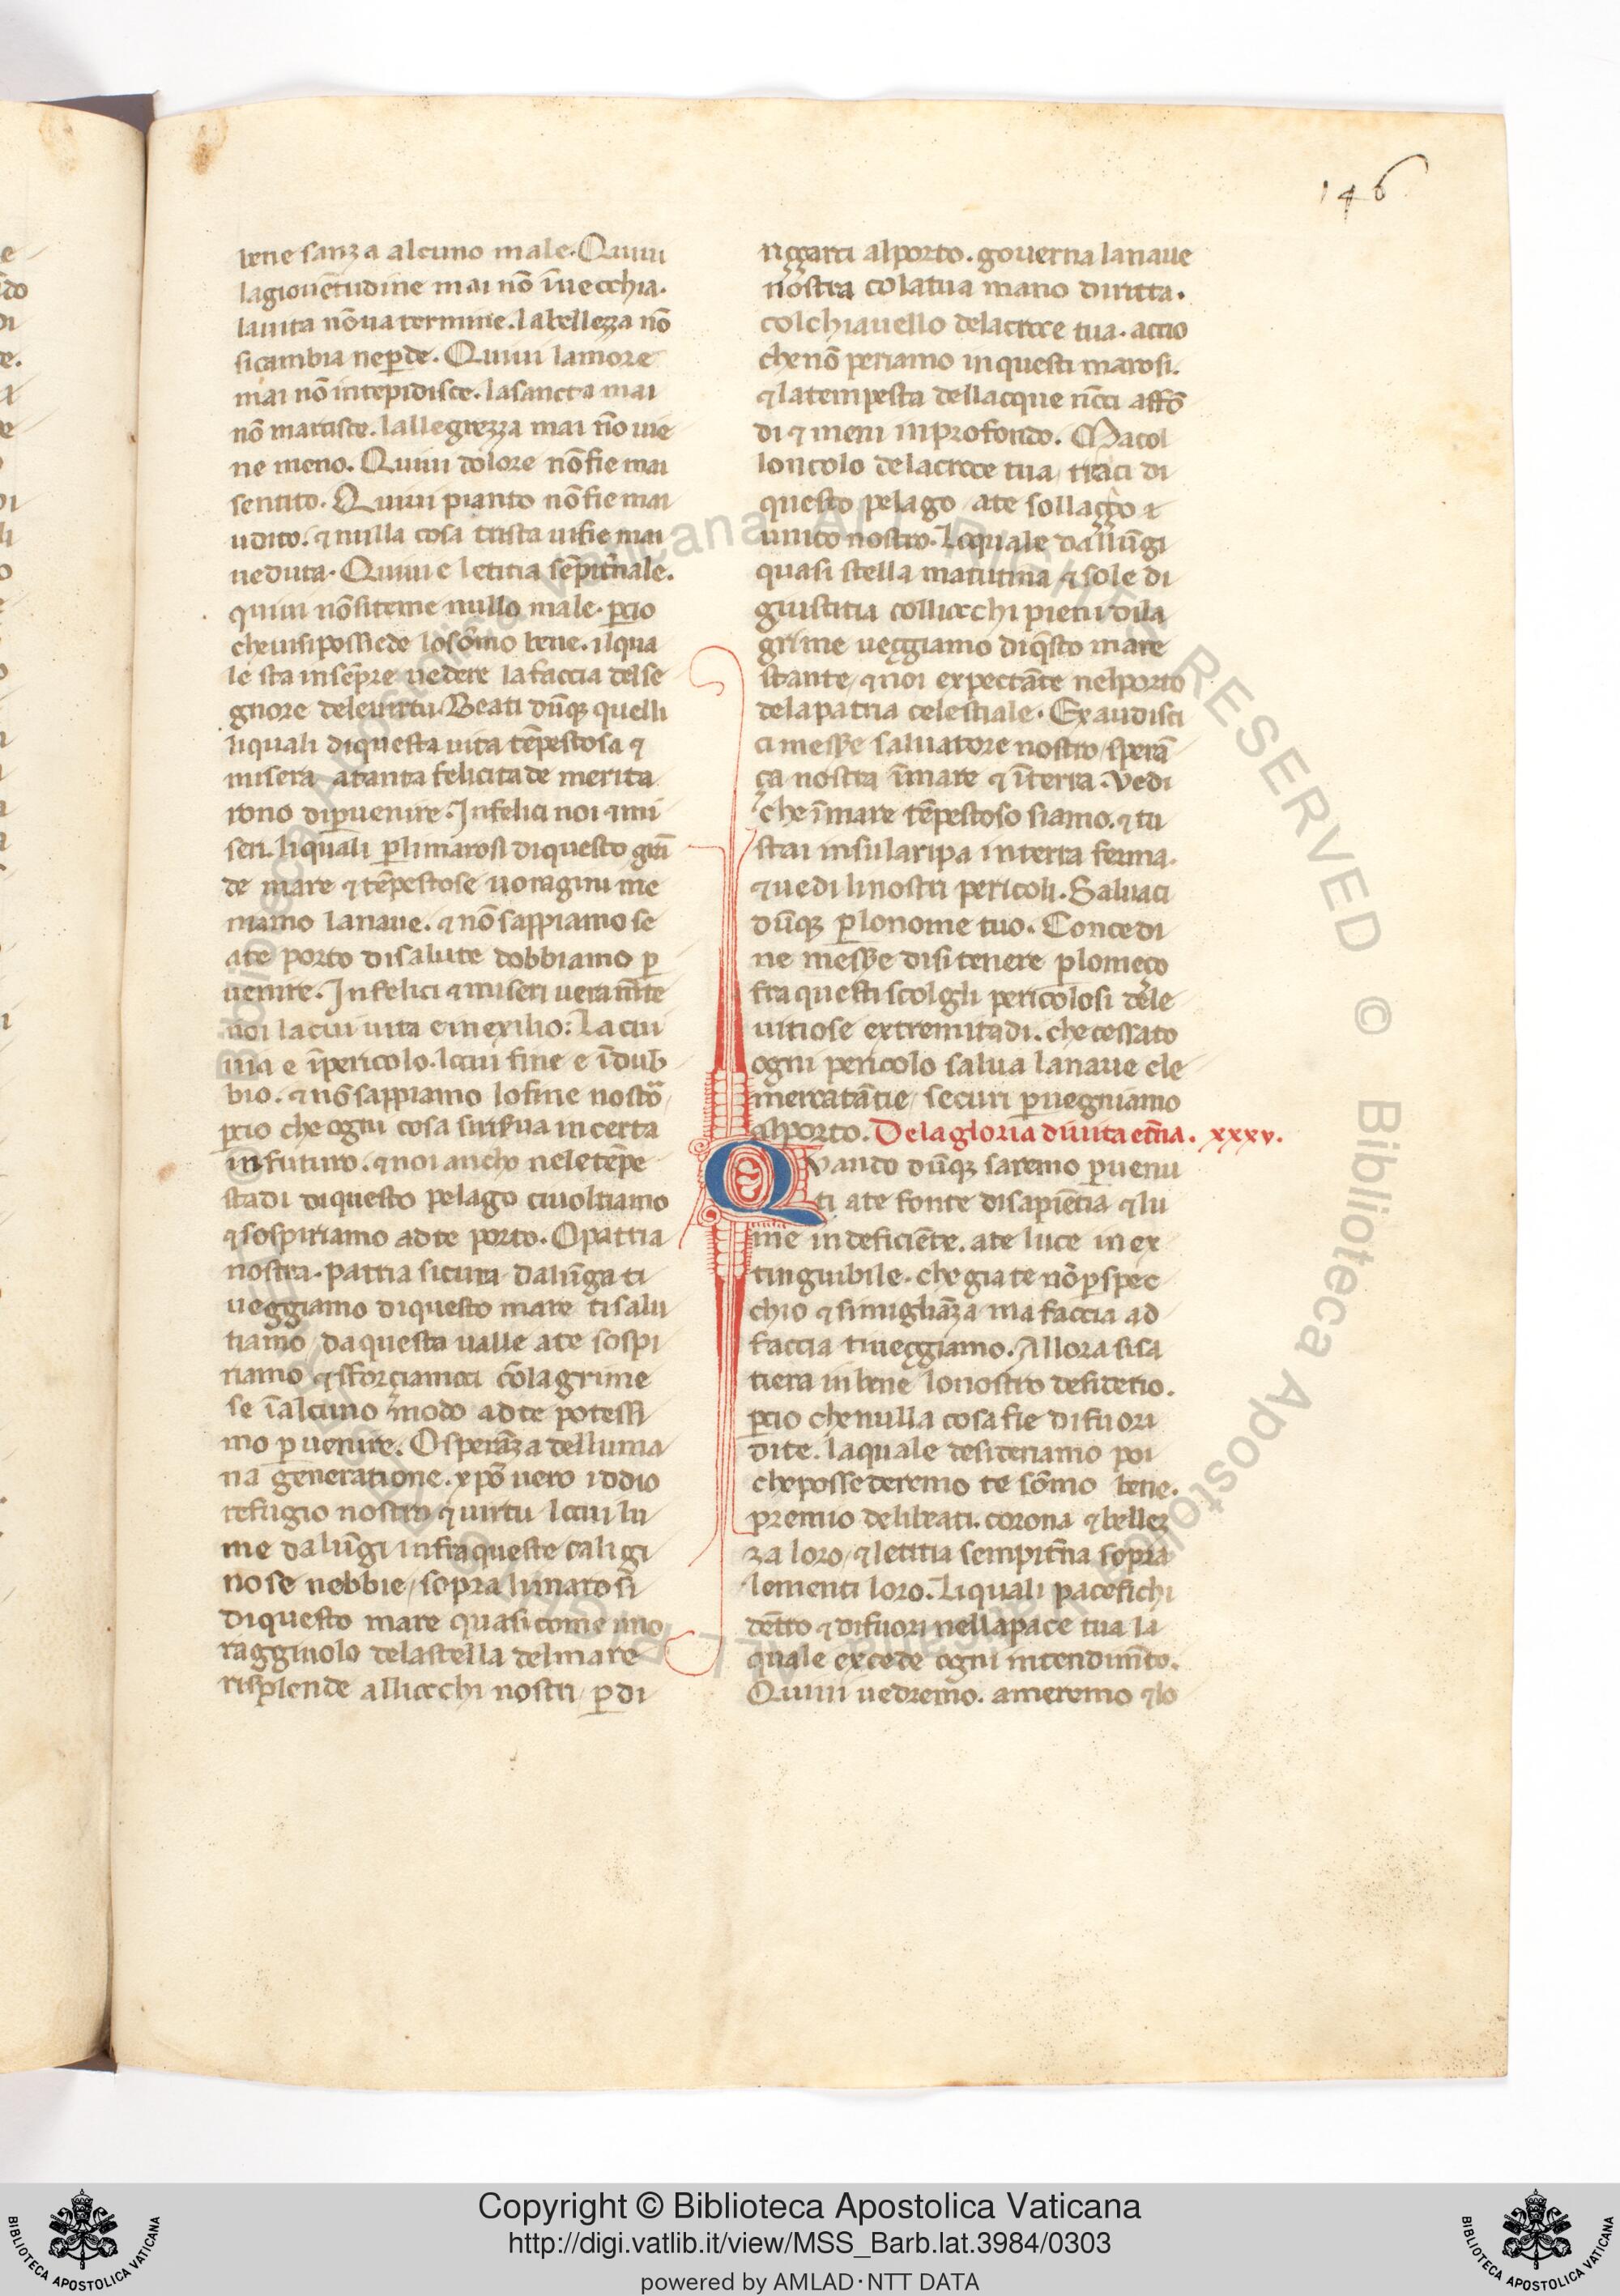 146
bene sanza alcuno male. Quiui
lagiouētudine mai nō īuecchia.
lauita nō ua termine. labellezza nō
sicambia neꝑde. Quiui lamore
mai nō intepidisce. lasancta mai
nō marcisce. lallegrezza mai nō uie
ne meno. Quiui dolore nō fie mai
sentito. Quiui pianto nō fie mai
udito. ⁊ nulla cosa trista uifie mai
ueduta. Quiui e letitia sēpit̄nale.
quiui nō siteme nullo male. ꝑcio
cheuisipossiede losōmo bene. ilqua
le sta insēpre uedere lafaccia delse
gnore deleuirtu. Beati dūqꝫ quelli
liquali diquesta uita tēpestosa ⁊
misera atanta felicitade merita
rono diꝑuenire. Infelici noi ⁊ mi
seri. liquali ꝑlimarosi diquesto grā
de mare ⁊ tēpestose uoragini me
niamo lanaue. ⁊ nō sappiamo se
ate porto disalute dobbiamo ꝑ
uenire. Infelici ⁊ miseri ueram̄te
noi lacui uita e inexilio: La cui
uia e īpericolo. lcui fine e īdub
bio. ⁊ nō sappiamo lofine nostro
ꝑcio che ogni cosa siriserua incerta
infuturo. ⁊ noi ancho neletēpe
stadi diquesto pelago ciuoltiamo
⁊ sospiriamo adte porto. O patria
nostra. patria sicura dalūga ti
ueggiamo diquesto mare tisalu
tiamo daquesta ualle ate sospi
riamo ⁊ sforçiamoci cō lagrime
se īalcuno modo adte potessi
mo ꝑuenire. O sperāza delluma
na generatione. xp̄o uero iddio
refugio nostro ⁊ uirtu lcui lu
me dalūgi infraqueste caligi
nose nebbie / sopra limarosi
diquesto mare quasi come uno
ragginolo delastella delmare
risplende alliocchi nostri / ꝑ di
riggarci alporto. gouerna lanaue
nostra colatua mano diritta.
colchiauello delacroce tua. accio
che nō periamo in questi marosi.
⁊ latempesta dellacque nōci affō
di ⁊ meni inprofondo. Macol
loncolo delacroce tua / traci di
questo pelago / ate sollaçço ⁊
unico nostro. Loquale dallūgi
quasi stella matutina ⁊ sole di
giustitia colliocchi pieni dila
grime ueggiamo diq̄sto mare
stante / ⁊ noi expectāte nelporto
delapatria celestiale. Exaudisci
ci messe saluatore nostro / sperā
ça nostra īmare ⁊ īterra. Vedi
che īmare tēpestoso siamo. ⁊ tu
stai insularipa interra ferma.
⁊ uedi linostri pericoli. Saluaci
dūqꝫ ꝑlonome tuo. Concedi
ne messe disi tenere ꝑlomeço
fra questi scolgli pericolosi dele
uitiose extremitadi. che cessato
ogni pericolo salua lanaue ele
mercatātie / securi ꝑuegniamo
alporto. Delagloria diuita et̄na. xxxv.
Quando dūqꝫ saremo ꝑuenu
ti ate fonte disapiētia ⁊ lu
me indeficiēte. ate luce inex
tinguibile. che gia te nō ꝑ spec
chio ⁊ simigliāza / ma faccia ad
faccia tiueggiamo. Allora sisa
tiera inbene lonostro desiderio.
ꝑcio che nulla cosa fie difuori
dite. laquale desideriamo poi
cheposse deremo te sōmo bene.
premio delibeati. corona ⁊ bellez
za loro / ⁊ letitia sempit̄na sopra
lementi loro. Liquali pacefichi
dētro ⁊ difuori nellapace tua la
quale excede ogni intendim̄to.
Quiui uedremo. ameremo ⁊ lo
Copyright © Biblioteca Apostolica Vaticana
http://digi.vatlib.it/view/MSS_Barb.lat.3984/0303
powered by AMLAD·NTT DATA